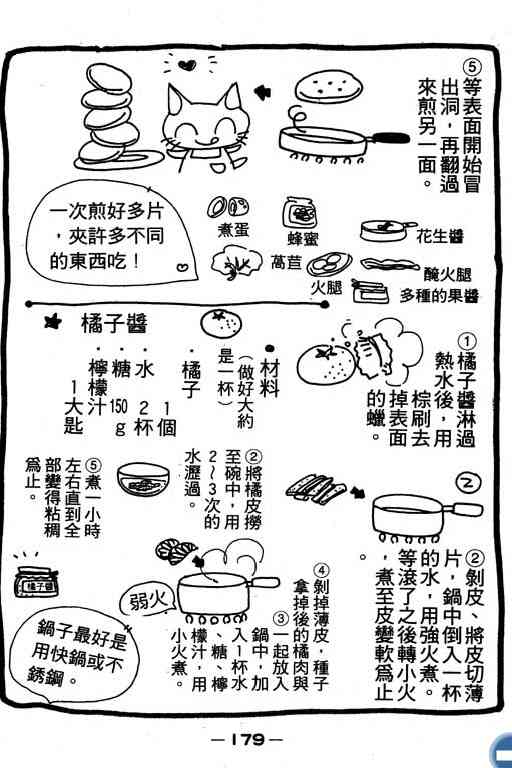 ⑤等表面開始冒
出洞，再翻過
來煎另一面。
一次煎好多片
，夾許多不同
的東西吃！
煮蛋
蜂蜜
花生醬
萵苣
火腿
醃火腿
多種的果醬
★ 橘子醬
●材料
（做好大約
是一杯）
・橘子 1個
・水 2杯
・糖 150g
・檸檬汁 1大匙
①橘子醬淋過
熱水後，用
棕刷去
掉表面
的蠟。
②
②剝皮、將皮切薄
片，鍋中倒入一杯
的水，用強火煮。
等滾了之後轉小火
，煮至皮變軟為止
。
②將橘皮撈
至碗中，用
2～3次的
水瀝過。
④剝掉薄皮，種子
拿掉後的橘肉與
③一起放入
鍋中，加
入1杯水
、糖、檸
檬汁，用
小火煮。
弱火
⑤煮一小時
左右直到全
部變得粘稠
為止。
橘子醬
鍋子最好是
用快鍋或不
銹鋼。
—179—